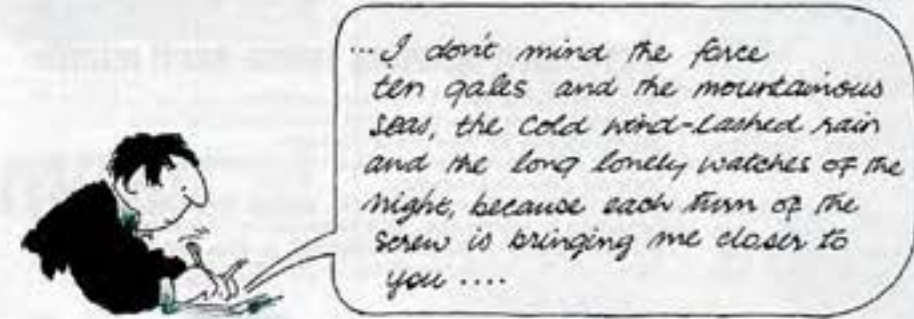 ... I don't mind the force
ten gales and the mountainous
seas, the cold wind-lashed rain
and the long lonely watches of the
night, because each turn of the
screw is bringing me closer to
you ....